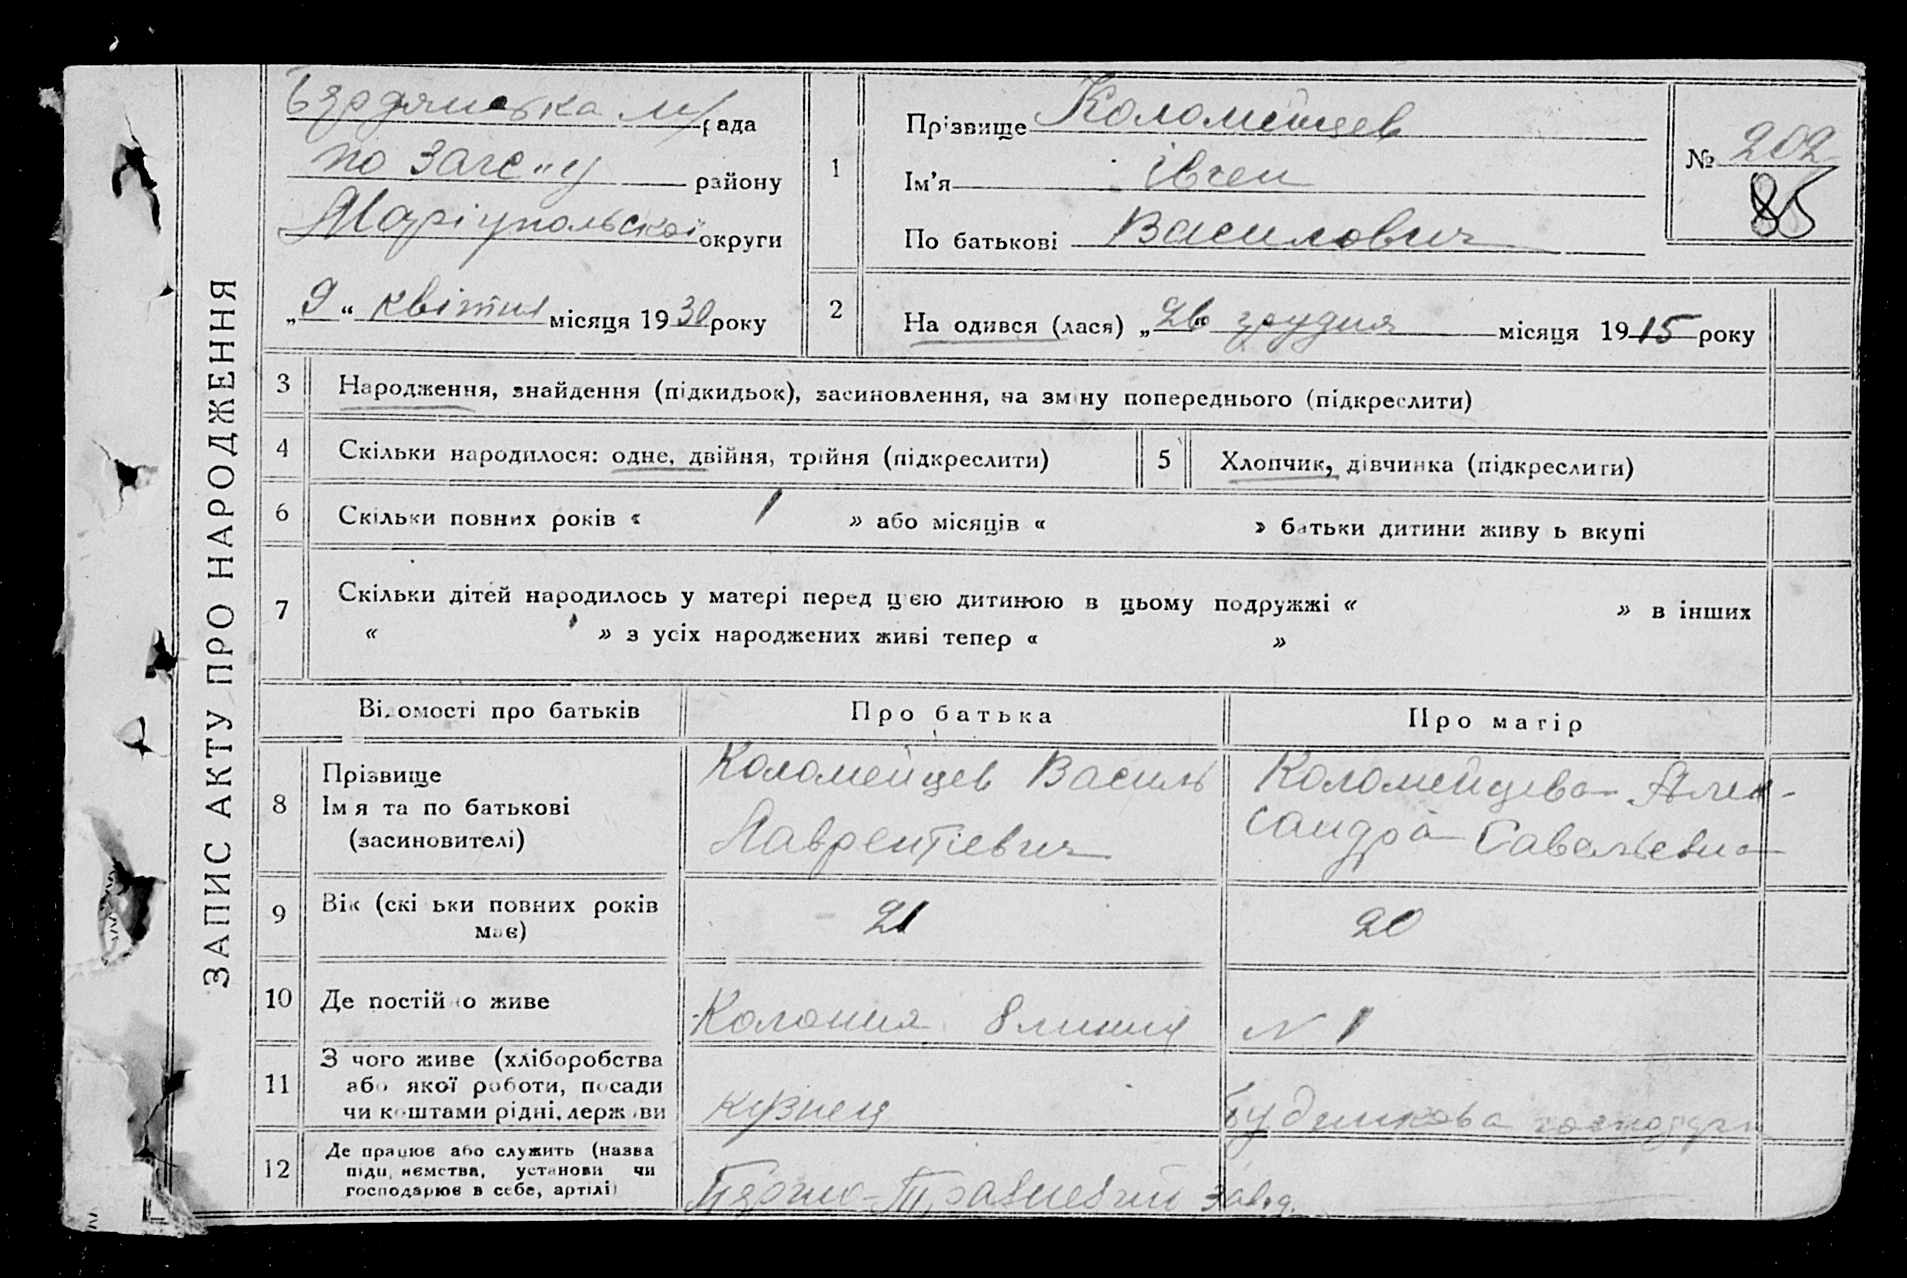 ЗАПИС АКТУ ПРО НАРОДЖЕННЯ
Бердянська м/рада
по Загс"у району
Маріупольскої округи
„9“ квітня місяця 1930 року
1
Прізвище Коломейцев
Ім'я Івген
По батькові Василович
№ 202
85
2
На одився (лася) „26 грудня місяця 1915 року
3 Народження, знайдення (підкидьок), засиновлення, на зміну попереднього (підкреслити)
4 Скільки народилося: одне, двійня, трійня (підкреслити)
5 Хлопчик, дівчинка (підкреслити)
6 Скільки повних років « 1 » або місяців « » батьки дитини живу ь вкупі
7 Скільки дітей народилось у матері перед цією дитиною в цьому подружжі « » в інших
« » з усіх народжених живі тепер « »
Відомості про батьків
Про батька
Про матір
8
Прізвище
Імя та по батькові
(засиновителі)
Коломейцев Василь
Лаврентіевич
Коломейцева Алек-
сандра Савельевна
9
Вік (скі ьки повних років
має)
21
20
10 Де постійно живе
Колония 8 линия
N 1
11
З чого живе (хліборобства
або якої роботи, посади
чи коштами рідні, держави
кузнец
будинкова господарк
12
Де працює або служить (назва
підприємства, установи чи
господарює в себе, артілі)
Завод.